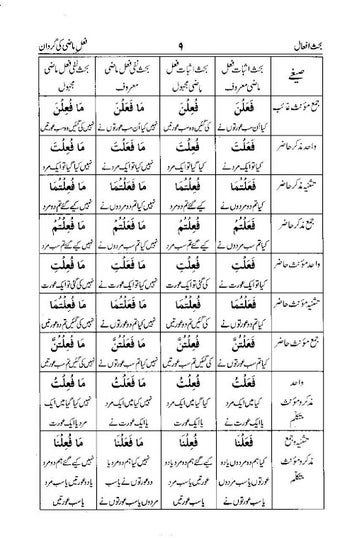 بحث افعال ۹ فعل ماضی کی گردان
صیغے بحث اثبات فعل ماضی معروف بحث اثبات فعل ماضی مجہول بحث نفی فعل ماضی معروف بحث نفی فعل ماضی مجہول
جمع مؤنث غائب فَعَلْنَ فُعِلْنَ مَا فَعَلْنَ مَا فُعِلْنَ
کیا ان سب عورتوں نے کی گئیں وہ سب عورتیں نہیں کیا ان سب عورتوں نے نہیں کی گئیں وہ سب عورتیں
واحد مذکر حاضر فَعَلْتَ فُعِلْتَ مَا فَعَلْتَ مَا فُعِلْتَ
کیا تو ایک مرد نے کیا گیا تو ایک مرد نہیں کیا تو ایک مرد نے نہیں کیا گیا تو ایک مرد
تثنیہ مذکر حاضر فَعَلْتُمَا فُعِلْتُمَا مَا فَعَلْتُمَا مَا فُعِلْتُمَا
کیا تم دو مردوں نے کیے گئے تم دو مرد نہیں کیا تم دو مردوں نے نہیں کیے گئے تم دو مرد
جمع مذکر حاضر فَعَلْتُمْ فُعِلْتُمْ مَا فَعَلْتُمْ مَا فُعِلْتُمْ
کیا تم سب مردوں نے کیے گئے تم سب مرد نہیں کیا تم سب مردوں نے نہیں کیے گئے تم سب مرد
واحد مؤنث حاضر فَعَلْتِ فُعِلْتِ مَا فَعَلْتِ مَا فُعِلْتِ
کیا تو ایک عورت نے کی گئی تو ایک عورت نہیں کیا تو ایک عورت نے نہیں کی گئی تو ایک عورت
تثنیہ مؤنث حاضر فَعَلْتُمَا فُعِلْتُمَا مَا فَعَلْتُمَا مَا فُعِلْتُمَا
کیا تم دو عورتوں نے کی گئیں تم دو عورتیں نہیں کیا تم دو عورتوں نے نہیں کی گئیں تم دو عورتیں
جمع مؤنث حاضر فَعَلْتُنَّ فُعِلْتُنَّ مَا فَعَلْتُنَّ مَا فُعِلْتُنَّ
کیا تم سب عورتوں نے کی گئیں تم سب عورتیں نہیں کیا تم سب عورتوں نے نہیں کی گئیں تم سب عورتیں
واحد فَعَلْتُ فُعِلْتُ مَا فَعَلْتُ مَا فُعِلْتُ
مذکر و مؤنث کیا میں ایک مرد کیا گیا میں ایک مرد نہیں کیا میں ایک مرد نہیں کیا گیا میں ایک مرد
متکلم یا ایک عورت نے یا ایک عورت یا ایک عورت نے یا ایک عورت
تثنیہ و جمع فَعَلْنَا فُعِلْنَا مَا فَعَلْنَا مَا فُعِلْنَا
مذکر و مؤنث کیا ہم دو مردوں یا دو کیے گئے ہم دو مرد یا دو نہیں کیا ہم دو مرد یا نہیں کیے گئے ہم دو مرد
متکلم عورتوں نے یا سب عورتیں یا سب مرد دو عورتوں نے یا سب یا دو عورتیں یا سب
مردوں یا سب عورتوں نے یا سب عورتیں مردوں یا سب عورتوں نے مرد یا سب عورتیں